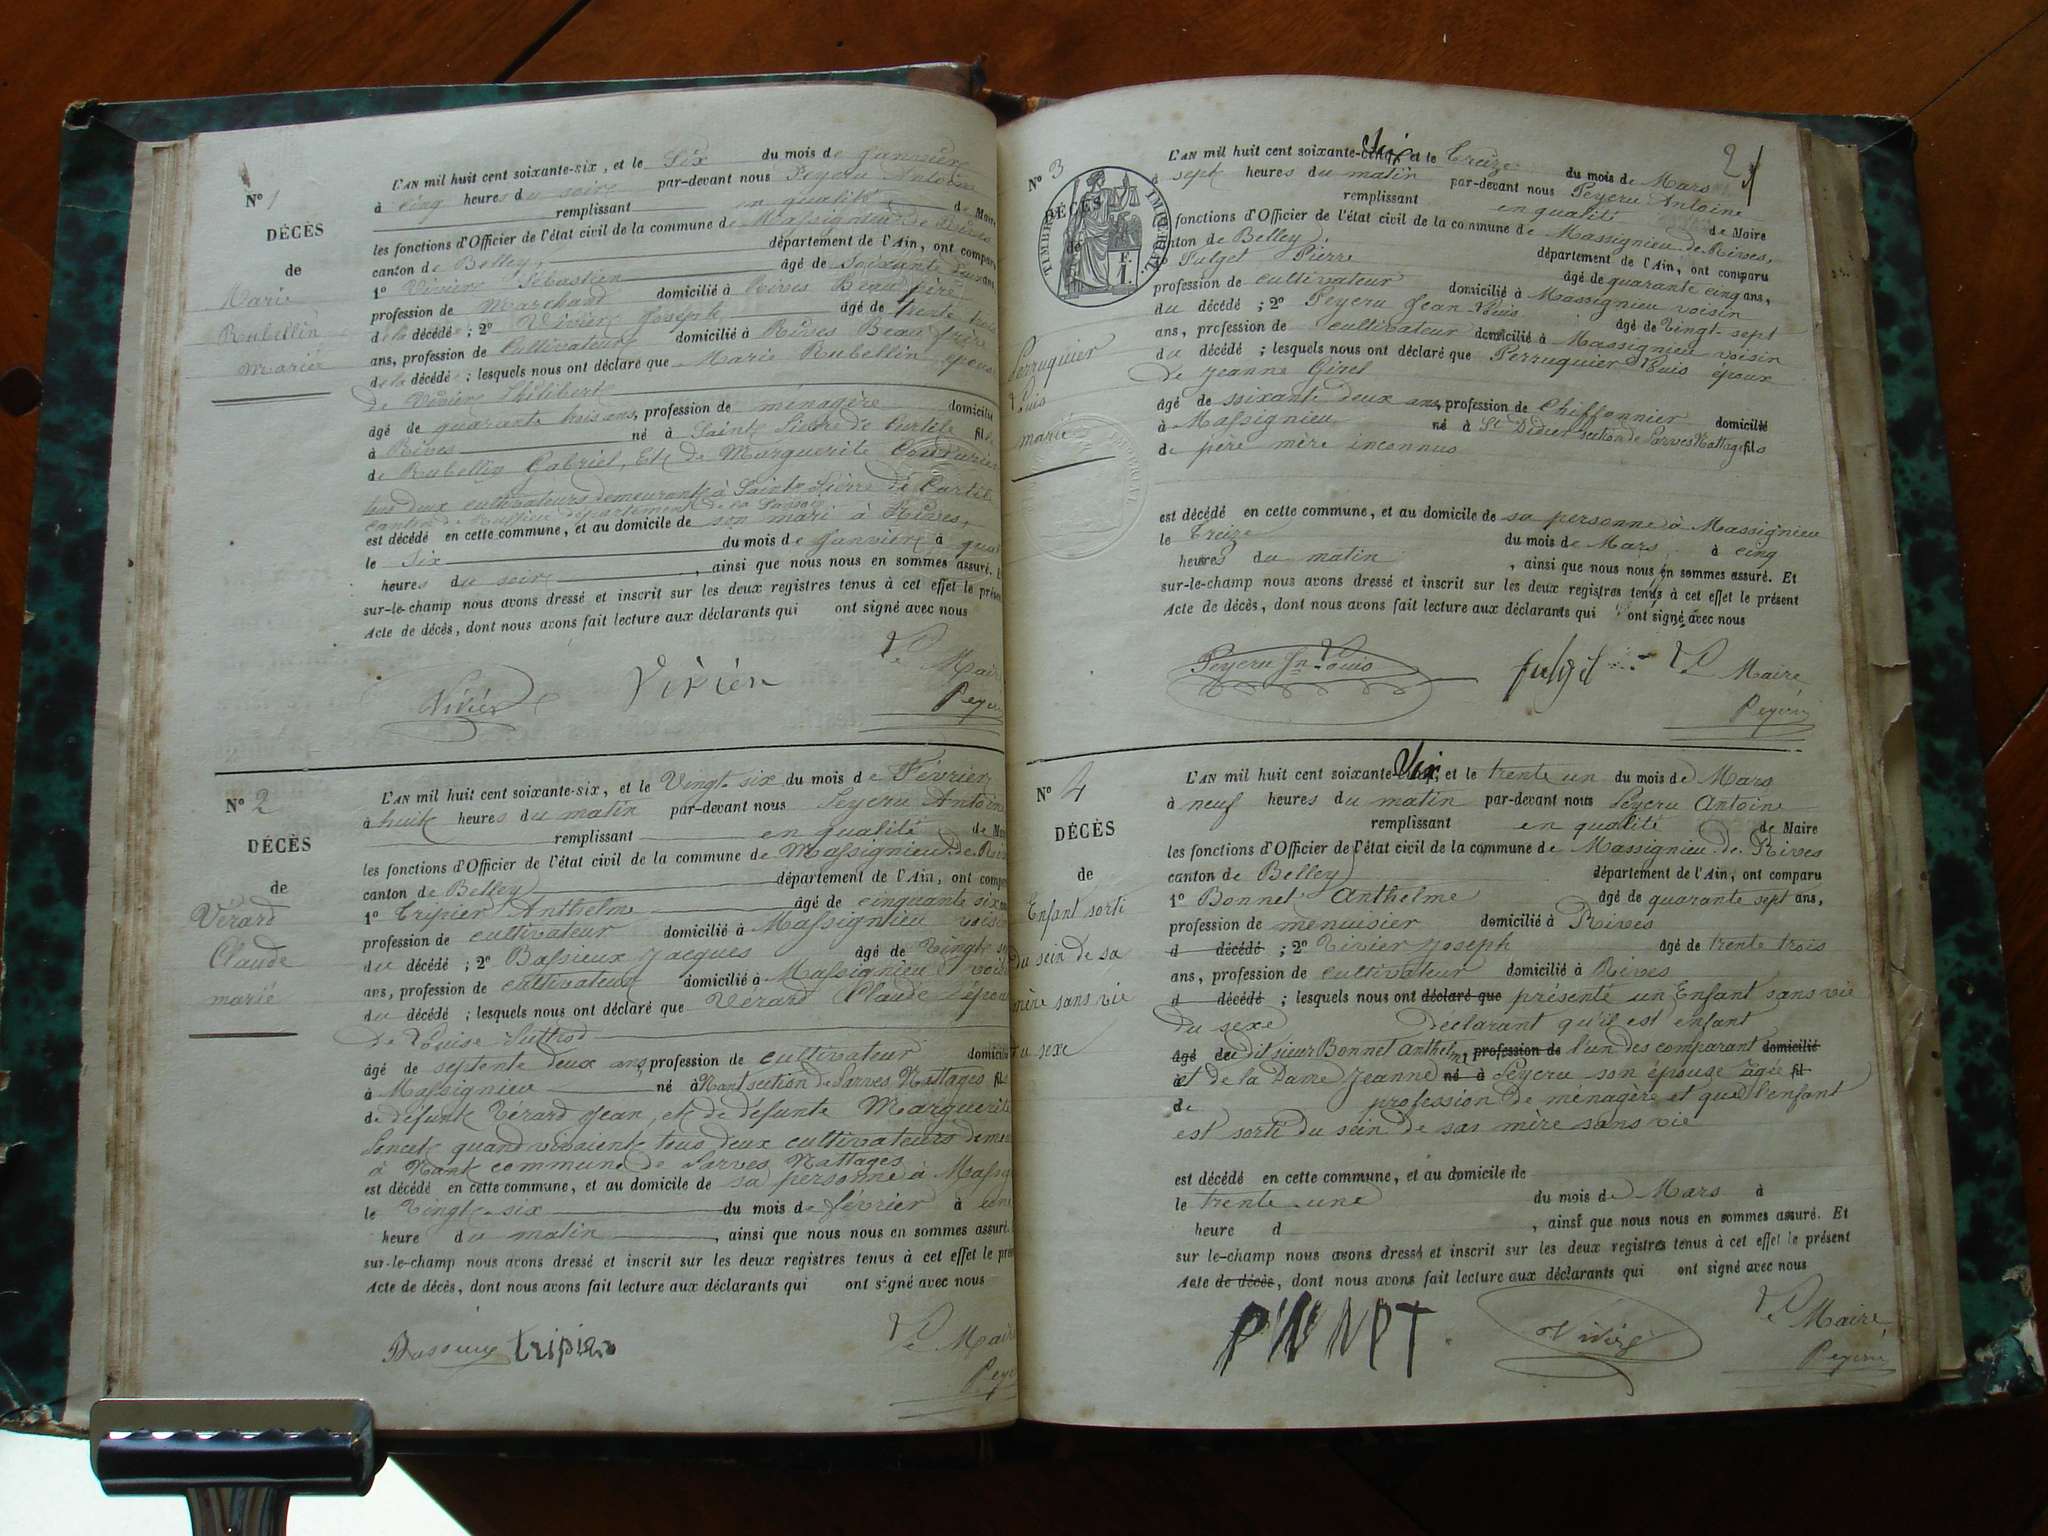 N° 1
DÉCÈS
de
Marie
Rubellin
mariée
L'AN mil huit cent soixante-six, et le Six du mois de Janvier
à cinq heures du soir par-devant nous Peycru Antoine
remplissant en qualité de Maire
les fonctions d'Officier de l'état civil de la commune de Massignieu de Rives
canton de Belley, département de l'Ain, ont comparu
1° Vivier Sébastien âgé de soixante ans
profession de Marchand domicilié à Rives Beau père
de la décédée; 2° Vivier Joseph âgé de trente trois
ans, profession de Cultivateur domicilié à Rives Beau frère
de la décédée; lesquels nous ont déclaré que Marie Rubellin épouse
de Vivier Philibert
âgé de quarante trois ans, profession de ménagère domicilié
à Rives né à Saint Pierre de Curtile fille
de Rubellin Gabriel, Et de Marguerite Couturier
tous deux cultivateurs demeurant à Saint Pierre de Curtile
canton de Ruffieu département de la Savoie
est décédé en cette commune, et au domicile de son mari à Rives,
le Six du mois de Janvier à quatre
heures du soir, ainsi que nous nous en sommes assuré. Et
sur-le-champ nous avons dressé et inscrit sur les deux registres tenus à cet effet le présent
Acte de décès, dont nous avons fait lecture aux déclarants qui ont signé avec nous
Vivier Vivien Le Maire
Peycru
N° 2
DÉCÈS
de
Vérard
Claude
marié
L'AN mil huit cent soixante-six, et le Vingt-six du mois de Février
à huit heures du matin par-devant nous Peycru Antoine
remplissant en qualité de Maire
les fonctions d'Officier de l'état civil de la commune de Massignieu de Rives
canton de Belley département de l'Ain, ont comparu
1° Tripier Anthelme âgé de cinquante six ans
profession de cultivateur domicilié à Massignieu voisin
du décédé; 2° Bassieux Jacques âgé de Vingt
ans, profession de cultivateur domicilié à Massignieu voisin
du décédé; lesquels nous ont déclaré que Vérard Claude époux
de Louise
âgé de septente deux ans, profession de cultivateur domicilié
à Massignieu né à Nant section de Parves Nattages fils
de défunt Vérard Jean, et de défunte Marguerite
Poncet quand vivaient tous deux cultivateurs
à Nant commune de Parves Nattages
est décédé en cette commune, et au domicile de sa personne à Massignieu
le Vingt-six du mois de février à une
heure du matin, ainsi que nous nous en sommes assuré.
sur-le-champ nous avons dressé et inscrit sur les deux registres tenus à cet effet le présent
Acte de décès, dont nous avons fait lecture aux déclarants qui ont signé avec nous
Bassieux tripier Le Maire
Peycru
2
N° 3
TIMBRE IMPÉRIAL
1 F.
DÉCÈS
de
Perruquier
Louis
marié
L'AN mil huit cent soixante-cinq Six, et le treize du mois de Mars
à sept heures du matin par-devant nous Peycru Antoine
remplissant en qualité de Maire
fonctions d'Officier de l'état civil de la commune de Massignieu de Rives,
canton de Belley, département de l'Ain, ont comparu
Pulget Pierre âgé de quarante cinq ans,
profession de cultivateur domicilié à Massignieu voisin
du décédé; 2° Peycru Jean Louis âgé de Vingt-sept
ans, profession de cultivateur domicilié à Massignieu voisin
du décédé; lesquels nous ont déclaré que Perruquier Louis époux
de Jeanne Girel
âgé de soixante deux ans, profession de Chiffonnier domicilié
à Massignieu né à St Didier section de Parves Nattage fils
de père mère inconnus
est décédé en cette commune, et au domicile de sa personne à Massignieu
le treize du mois de Mars à cinq
heures du matin, ainsi que nous nous en sommes assuré. Et
sur-le-champ nous avons dressé et inscrit sur les deux registres tenus à cet effet le présent
Acte de décès, dont nous avons fait lecture aux déclarants qui ont signé avec nous
Peycru Jn Louis Pulget Le Maire
Peycru
N° 4
DÉCÈS
de
Enfant sorti
du sein de sa
mère sans vie
du sexe
L'AN mil huit cent soixante-cinq Six, et le trente un du mois de Mars
à neuf heures du matin par-devant nous Peycru Antoine
remplissant en qualité de Maire
les fonctions d'Officier de l'état civil de la commune de Massignieu de Rives
canton de Belley département de l'Ain, ont comparu
1° Bonnet Anthelme âgé de quarante sept ans,
profession de menuisier domicilié à Rives
d décédé; 2° Vivier Joseph âgé de trente trois
ans, profession de cultivateur domicilié à Rives
d décédé; lesquels nous ont déclaré que présenté un Enfant sans vie
du sexe déclarant qu'il est enfant
âgé de dit sieur Bonnet Anthelme profession de l'un des comparant domicilié
à et de la Dame Jeanne né à Peycru son épouse âgée fil
de profession de ménagère et que l'enfant
est sorti du sein de sas mère sans vie
est décédé en cette commune, et au domicile de
le trente une du mois de Mars à
heure d, ainsi que nous nous en sommes assuré. Et
sur le-champ nous avons dressé et inscrit sur les deux registres tenus à cet effet le présent
Acte de décès, dont nous avons fait lecture aux déclarants qui ont signé avec nous
Vivier Le Maire,
Peycru